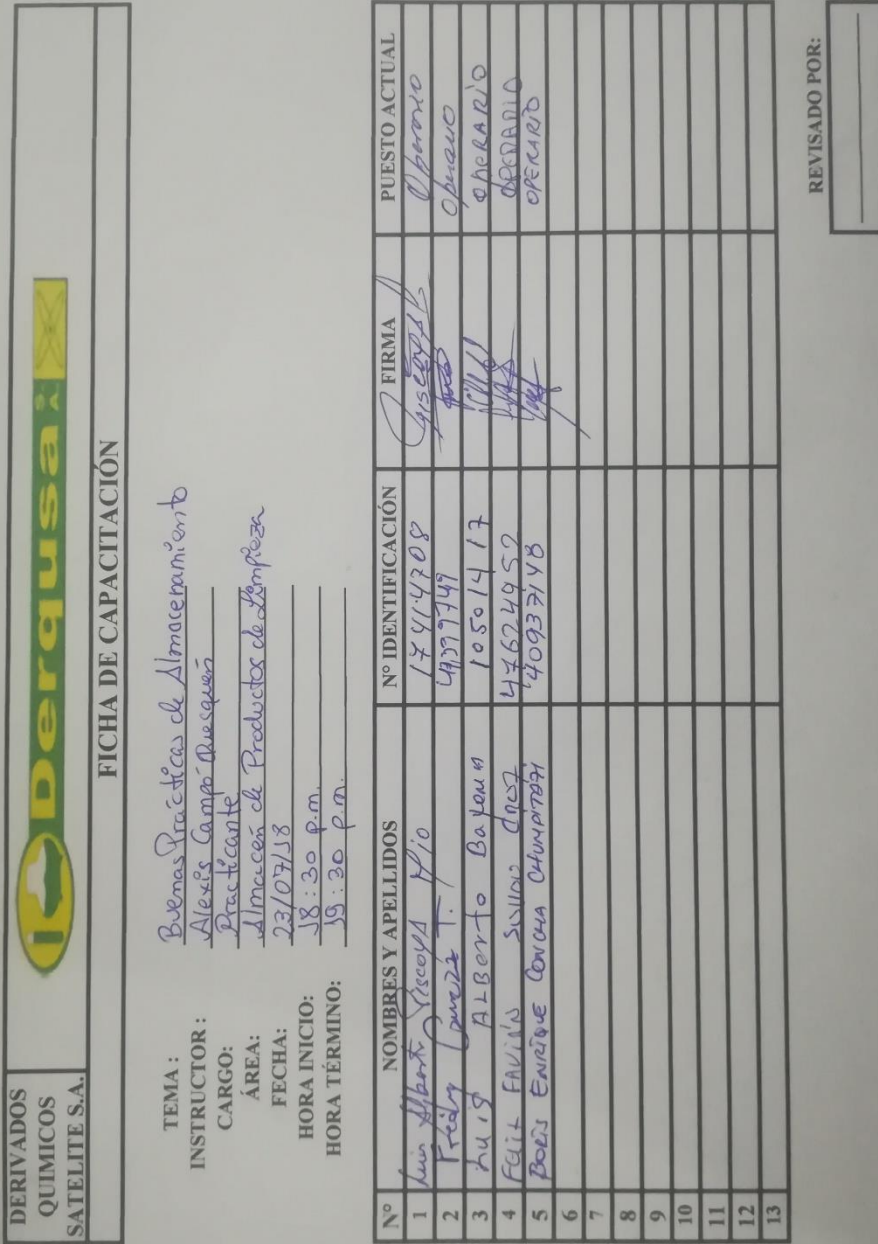 DERIVADOS
QUIMICOS
SATELITE S.A.
Derqusa S.A.
FICHA DE CAPACITACIÓN
TEMA : Buenas Prácticas de Almacenamiento
INSTRUCTOR : Alexis Campó Quesquén
CARGO: Practicante
ÁREA: Almacén de Productos de Limpieza
FECHA: 23/07/18
HORA INICIO: 18:30 p.m.
HORA TÉRMINO: 19:30 p.m.
N° NOMBRES Y APELLIDOS N° IDENTIFICACIÓN FIRMA PUESTO ACTUAL
1 Luis Alberto Yiscoya Mio Operario
2 Fredy T. Operario
3 Luis ALBerto Bayona 10501417 OPERARIO
4 Felix FAVIÁN 47624952 OPERARIO
5 BORIS ENRIQUE CONCHA CHUMPITAZI OPERARIO
6
7
8
9
10
11
12
13
REVISADO POR: